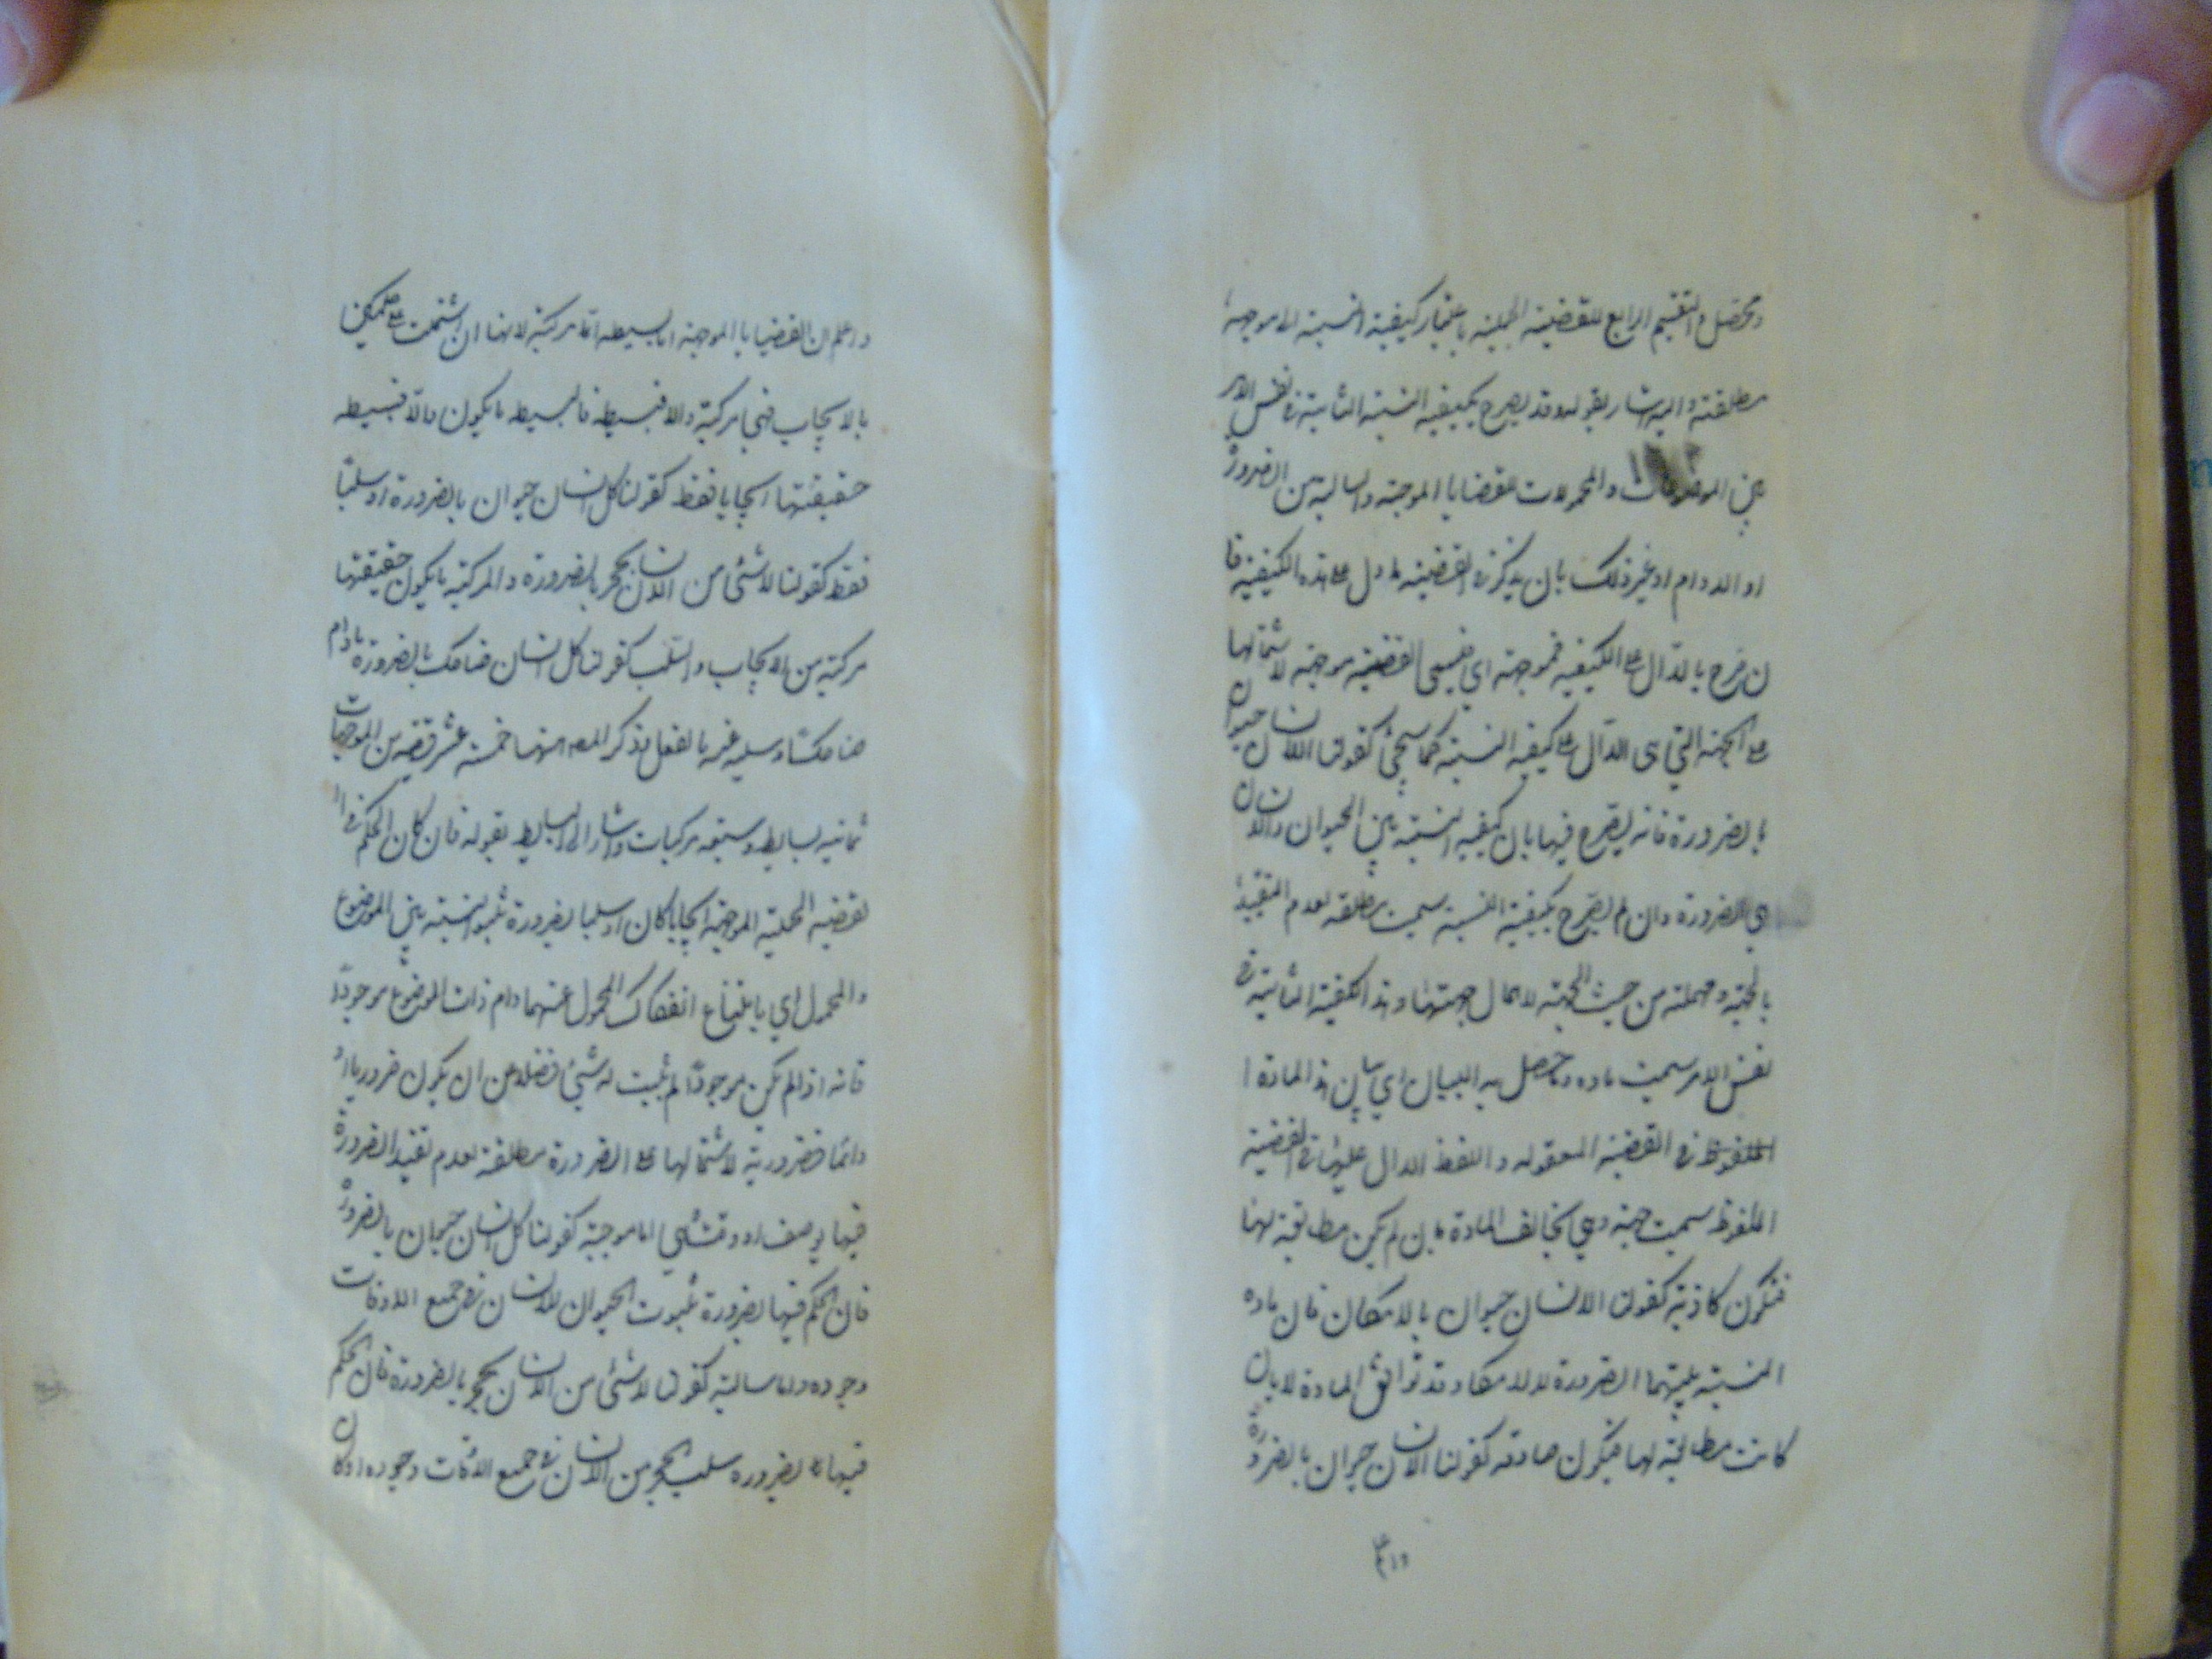 ومحصل التقسيم الرابع للقضية الحملية باعتبار كيفية النسبة الى موجهة
مطلقة واليه اشار بقوله وقد يصرح بكيفية النسبة الثابتة في نفس الامر
بين الموضوعات والمحمولات للقضايا الموجبة والسالبة من الضرورة
او الدوام او غير ذلك بان يذكر في القضية ما دل على هذه الكيفية فا
ن صرح بالدال على الكيفية فموجهة اي فيسمى القضية موجهة لاشتمالها
على الجهة التي هي الدال على كيفية النسبة كما سيجئ كقولنا الانسان حيوان
بالضرورة فانه يصرح فيها بان كيفية النسبة بين الحيوان والانسان
هي الضرورة وان لم يصرح بكيفية النسبة سميت مطلقه لعدم التقييد
بالجهة ومهملة من حيث الجهة لاهمال جهتها وهذا الكيفية الثابتة في
نفس الامر سميت ماده وما حصل به البيان اي بيان هذا المادة ا
الملفوظ في القضية المعقوله واللفظ الدال عليها في القضية
الملفوظ سميت جهة وهي تخالف المادة بان لم تكن مطابقة لها
فتكون كاذبة كقولنا الانسان حيوان بالامكان فان ماده
النسبة بينهما الضرورة لا الامكا وقد توافق المادة لا بان
كانت مطابقة لها فيكون صادقه كقولنا الانسان حيوان بالضرورة
واعلم
واعلم ان القضايا الموجهة اما بسيطه اما مركبة لانها ان اشتملت على حكمين
بالايجاب فهي مركبة والا فبسيطه فالبسيطه ما يكون والا فبسيطه
حقيقتها ايجابا فقط كقولنا كل انسان حيوان بالضرورة او سلبا
فقط كقولنا لا شئ من الانسان بحجر بالضرورة والمركبة ما يكون حقيقتها
مركبة من الايجاب والسلب كقولنا كل انسان ضاحك بالضرورة مادام
ضاحكا وسلبه عنه بالفعل وذكر المص منها خمسة عشر قضيه من الموجهات
ثمانيه بسايط وسبعه مركبات واشار الى البسايط بقوله فان كان الحكم في ا
لقضيه الحملية الموجهة ايجابا كان او سلبا بضرورة ثبوت النسبة بين الموضوع
والمحمول اي بامتناع انفكاك المحمول عنهما دام ذات الموضوع موجودا
فانه اذا لم يكن موجودا لم يثبت له شئ فضلا عن ان يكون ضروريا او
دائما فضرورية لاشتمالها على الضرورة مطلقة لعدم تقييد الضرورة
فيها بوصف او وقت اي اما موجبة كقولنا كل انسان حيوان بالضرورة
فان الحكم فيها بضرورة ثبوت الحيوان للانسان في جميع الاوقات
وجوده واما سالبة كقولنا لا شئ من الانسان بحجر بالضرورة فان الحكم
فيها بضروره سلب الحجر من الانسان في جميع الاوقات وجوده او كان